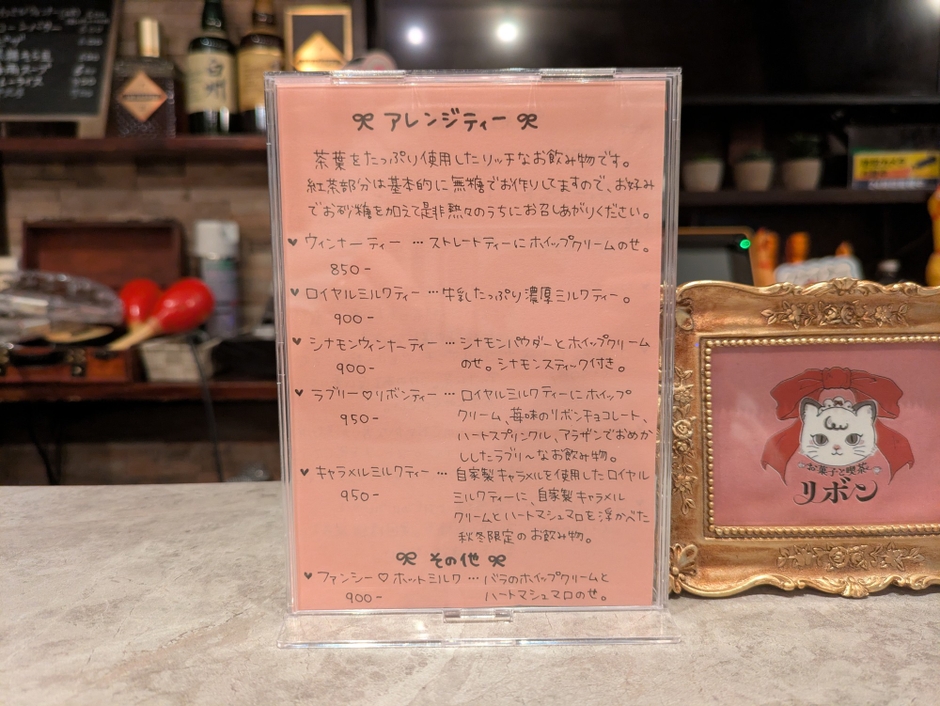 アレンジティー
茶葉をたっぷり使用したリッチなお飲み物です。
紅茶部分は基本的に無糖でお作りしてますので、お好み
でお砂糖を加えて是非熱々のうちにお召しあがりください。
♥ ウィンナーティー … ストレートティーにホイップクリームのせ。
850-
♥ ロイヤルミルクティー … 牛乳たっぷり濃厚ミルクティー。
900-
♥ シナモンウィンナーティー … シナモンパウダーとホイップクリーム
900- のせ。シナモンスティック付き。
♥ ラブリー♡リボンティー … ロイヤルミルクティーにホイップ
950- クリーム、苺味のリボンチョコレート、
ハートスプリンクル、アラザンでおめか
ししたラブリ〜なお飲み物。
♥ キャラメルミルクティー … 自家製キャラメルを使用したロイヤル
950- ミルクティーに、自家製キャラメル
クリームとハートマシュマロを浮かべた
秋冬限定のお飲み物。
その他
♥ ファンシー♡ホットミルク … バラのホイップクリームと
900- ハートマシュマロのせ。
お菓子と喫茶
リボン
白州